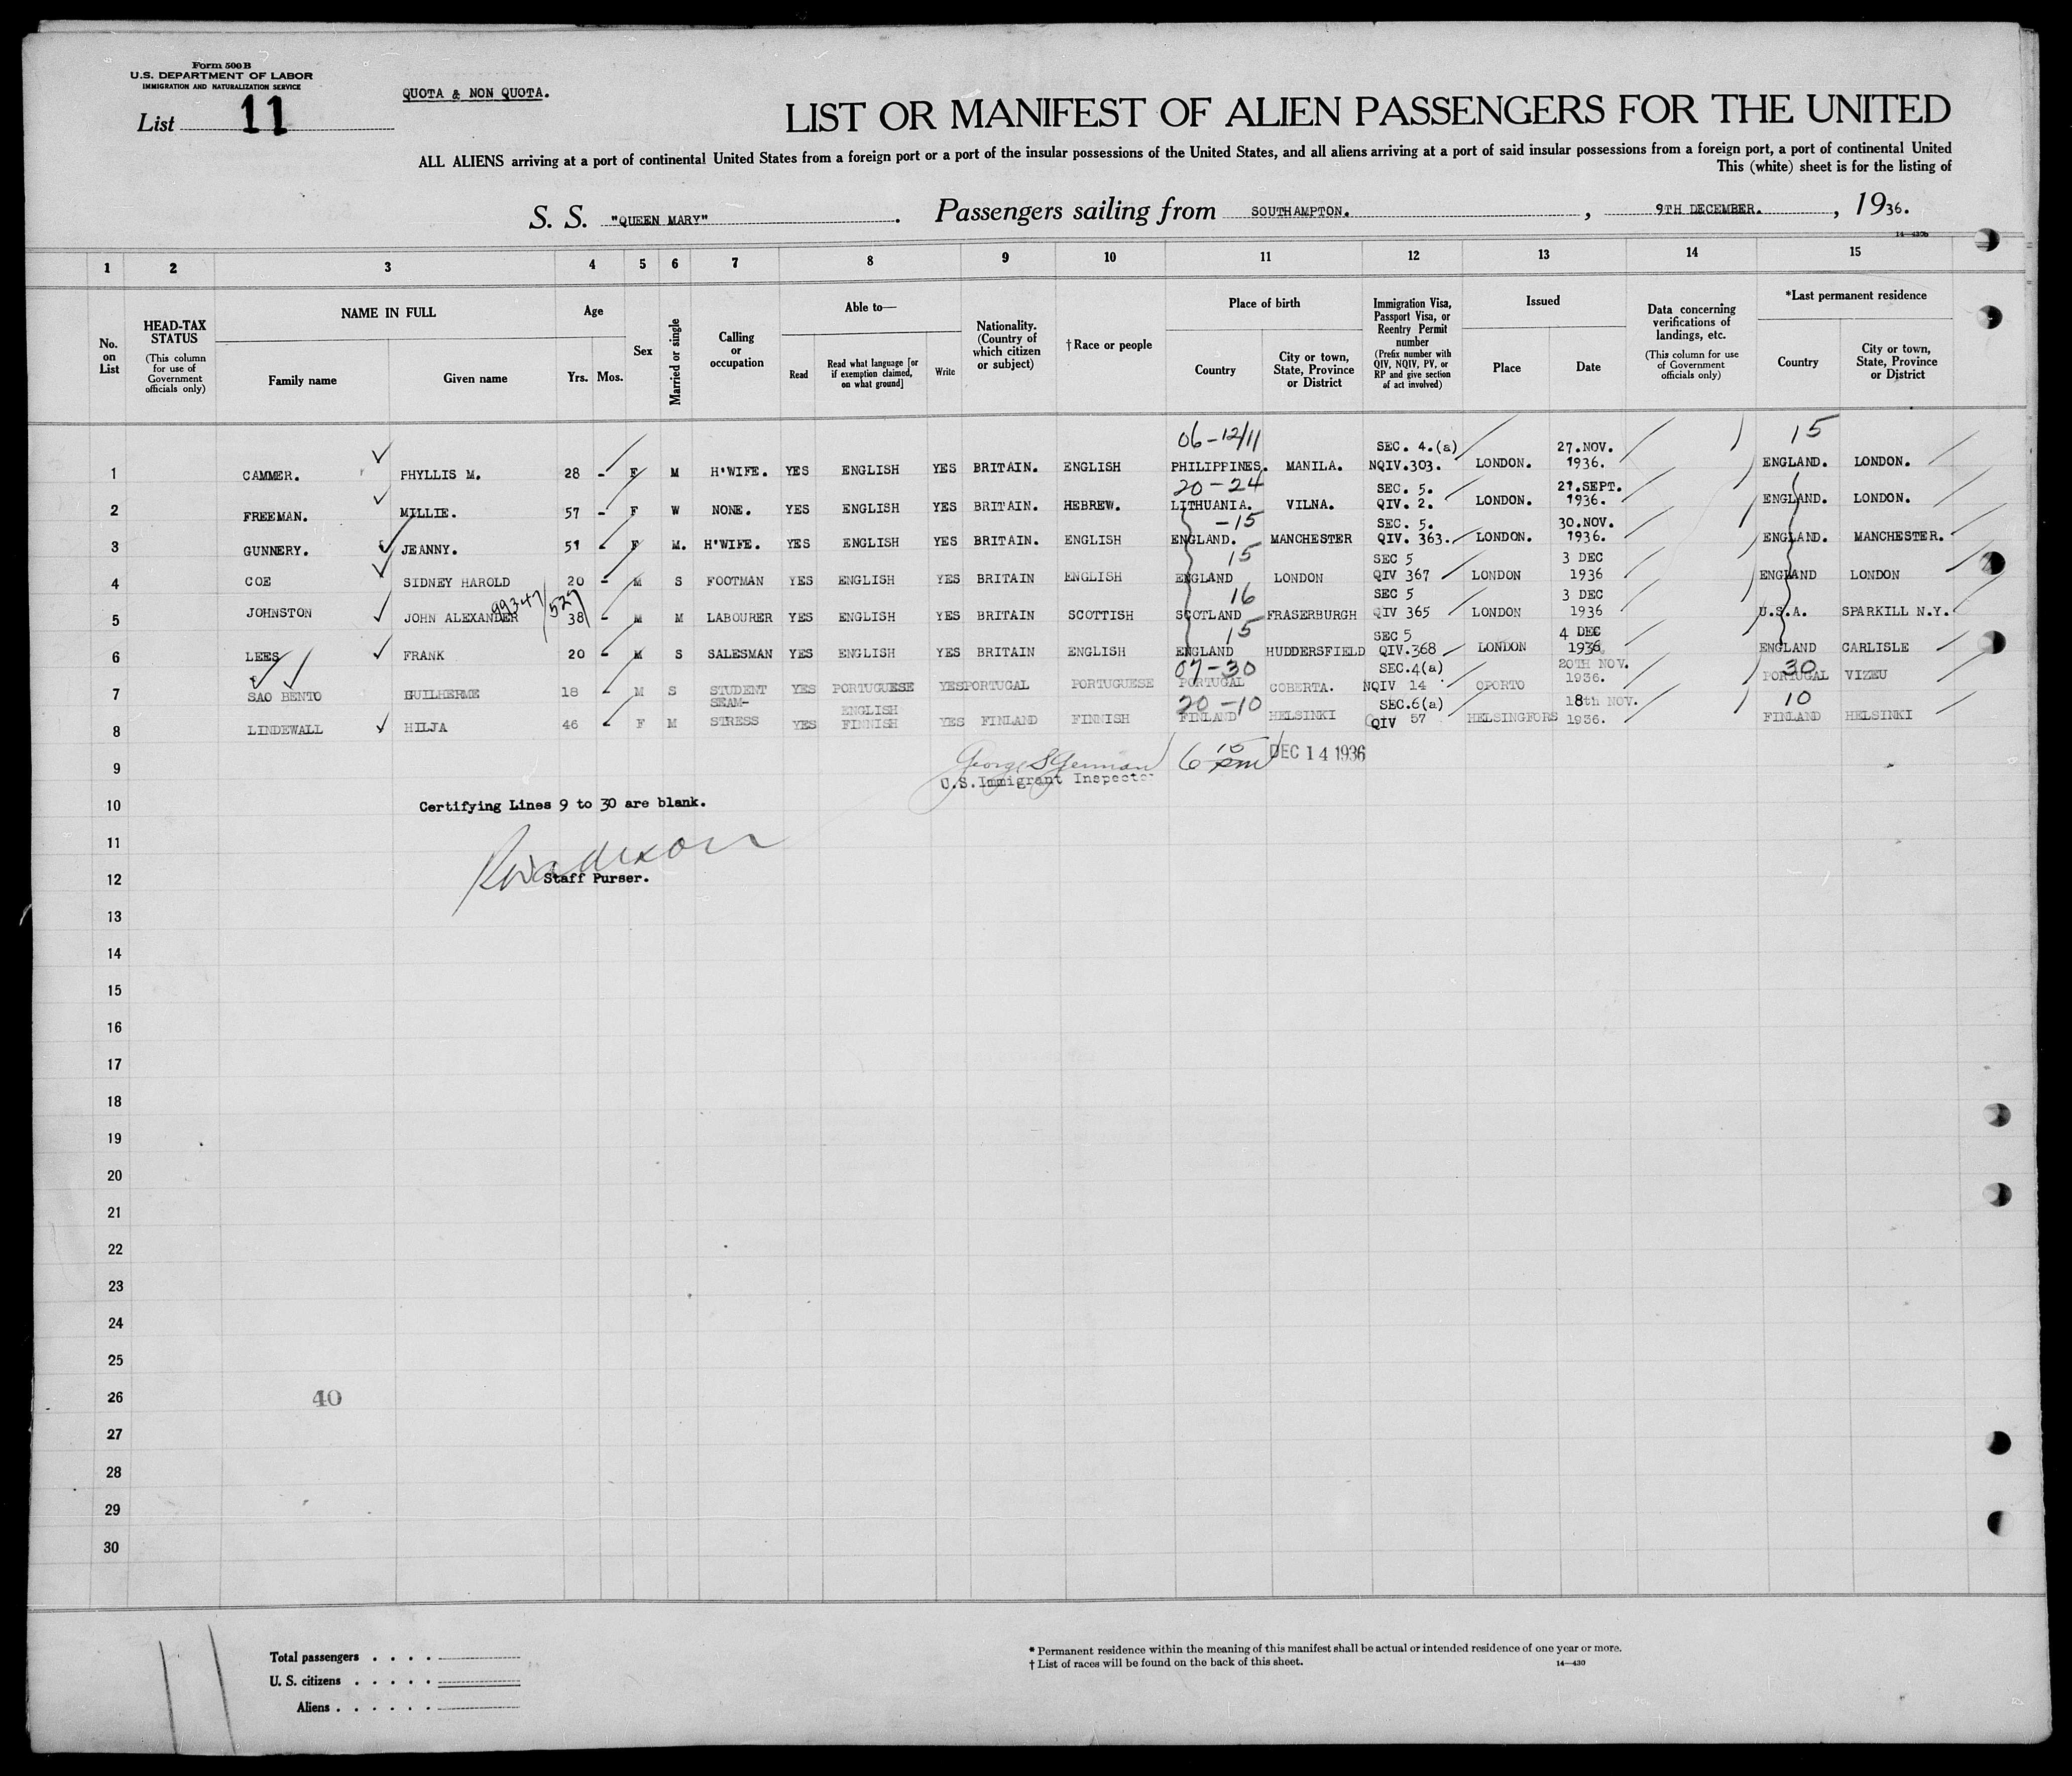 Form 500 B
U.S. DEPARTMENT OF LABOR
IMMIGRATION AND NATURALIZATION SERVICE
List 11
QUOTA & NON QUOTA.
LIST OR MANIFEST OF ALIEN PASSENGERS FOR THE UNITED
ALL ALIENS arriving at a port of continental United States from a foreign port or a port of the insular possessions of the United States, and all aliens arriving at a port of said insular possessions from a foreign port, a port of continental United
This (white) sheet is for the listing of
S. S. "QUEEN MARY". Passengers sailing from SOUTHAMPTON., 9TH DECEMBER., 1936.
1 2 3 4 5 6 7 8 9 10 11 12 13 14 15
No. on List
HEAD-TAX STATUS
(This column for use of Government officials only)
NAME IN FULL
Family name
Given name
Age
Yrs. Mos.
Sex
Married or single
Calling or occupation
Able to—
Read
Read what language [or if exemption claimed, on what ground]
Write
Nationality. (Country of which citizen or subject)
† Race or people
Place of birth
Country
City or town, State, Province or District
Immigration Visa, Passport Visa, or Reentry Permit number
(Prefix number with QIV, NQIV, PV, or RP and give section of act involved)
Issued
Place
Date
Data concerning verifications of landings, etc.
(This column for use of Government officials only)
*Last permanent residence
Country
City or town, State, Province or District
06-12/11 SEC. 4.(a) 27.NOV. 15
1 CAMMER. PHYLLIS M. 28 - F M H'WIFE. YES ENGLISH YES BRITAIN. ENGLISH PHILIPPINES. MANILA. NQIV.303. LONDON. 1936. ENGLAND. LONDON.
20-24 SEC. 5. 21.SEPT.
2 FREEMAN. MILLIE. 57 - F W NONE. YES ENGLISH YES BRITAIN. HEBREW. LITHUANIA. VILNA. QIV. 2. LONDON. 1936. ENGLAND. LONDON.
-15 SEC. 5. 30.NOV.
3 GUNNERY. JEANNY. 51 - F M. H'WIFE. YES ENGLISH YES BRITAIN. ENGLISH ENGLAND. MANCHESTER QIV. 363. LONDON. 1936. ENGLAND. MANCHESTER.
15 SEC 5 3 DEC
4 COE SIDNEY HAROLD 20 - M S FOOTMAN YES ENGLISH YES BRITAIN ENGLISH ENGLAND LONDON QIV 367 LONDON 1936 ENGLAND LONDON
99347/527 16 SEC 5 3 DEC
5 JOHNSTON JOHN ALEXANDER 38 M M LABOURER YES ENGLISH YES BRITAIN SCOTTISH SCOTLAND FRASERBURGH QIV 365 LONDON 1936 U.S.A. SPARKILL N.Y.
15 SEC 5 4 DEC
6 LEES FRANK 20 - M S SALESMAN YES ENGLISH YES BRITAIN ENGLISH ENGLAND HUDDERSFIELD QIV.368 LONDON 1936 ENGLAND CARLISLE
07-30 SEC.4(a) 20TH NOV. 30
7 SAO BENTO GUILHERME 18 - M S STUDENT YES PORTUGUESE YES PORTUGAL PORTUGUESE PORTUGAL COBERTA. NQIV 14 OPORTO 1936. PORTUGAL VIZEU
SEAM- ENGLISH 20-10 SEC.6(a) 18th NOV. 10
8 LINDEWALL HILJA 46 - F M STRESS YES FINNISH YES FINLAND FINNISH FINLAND HELSINKI QIV 57 HELSINGFORS 1936. FINLAND HELSINKI
9 6 15 pm DEC 14 1936
U.S. Immigrant Inspector
10 Certifying Lines 9 to 30 are blank.
11
12 Staff Purser.
13
14
15
16
17
18
19
20
21
22
23
24
25
26 40
27
28
29
30
Total passengers . . . .
U. S. citizens . . . . .
Aliens . . . . . .
* Permanent residence within the meaning of this manifest shall be actual or intended residence of one year or more.
† List of races will be found on the back of this sheet.
14—430